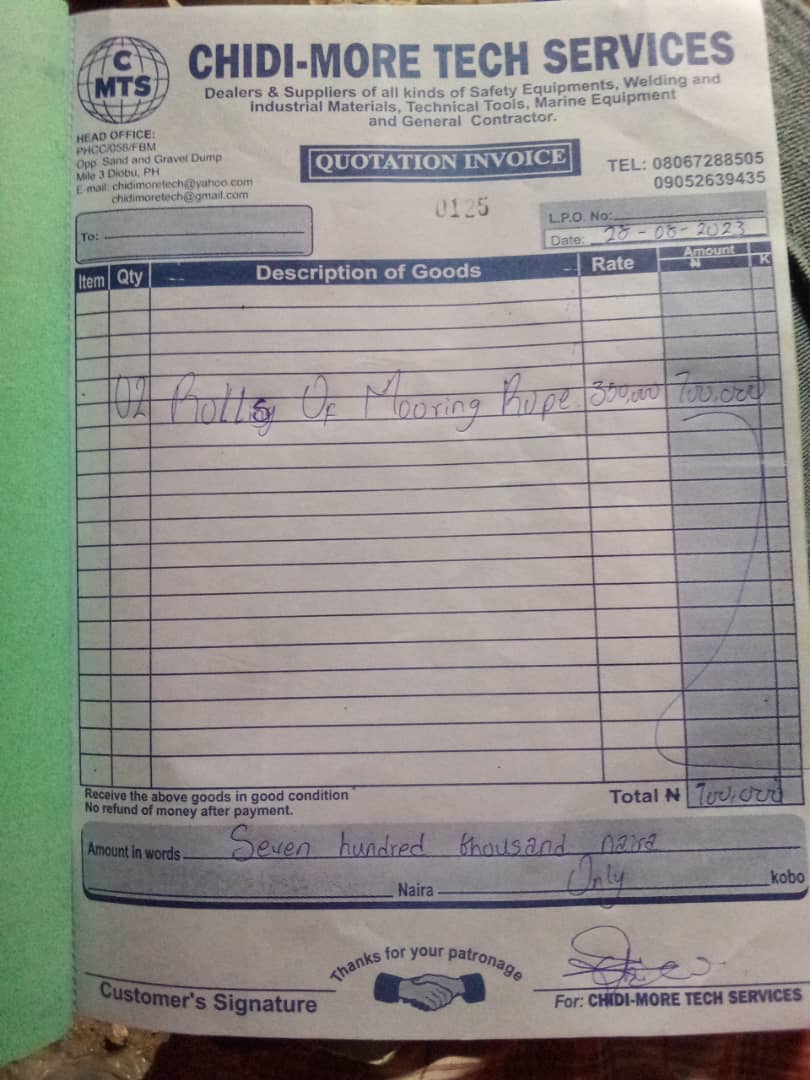 C
MTS
CHIDI-MORE TECH SERVICES
Dealers & Suppliers of all kinds of Safety Equipments, Welding and
Industrial Materials, Technical Tools, Marine Equipment
and General Contractor.
HEAD OFFICE:
PHCC/058/FBM
Opp. Sand and Gravel Dump
Mile 3 Diobu, PH
E-mail: chidimoretech@yahoo.com
chidimoretech@gmail.com
QUOTATION INVOICE
TEL: 08067288505
09052639435
0125
To:
L.P.O. No:
Date: 28-08-2023
Item Qty Description of Goods Rate Amount
₦ K
02 Rolls Of Mooring Rope. 350,000 700,000
Receive the above goods in good condition
No refund of money after payment.
Total ₦ 700,000
Amount in words Seven hundred thousand naira
Naira Only kobo
Thanks for your patronage
Customer's Signature
For: CHIDI-MORE TECH SERVICES